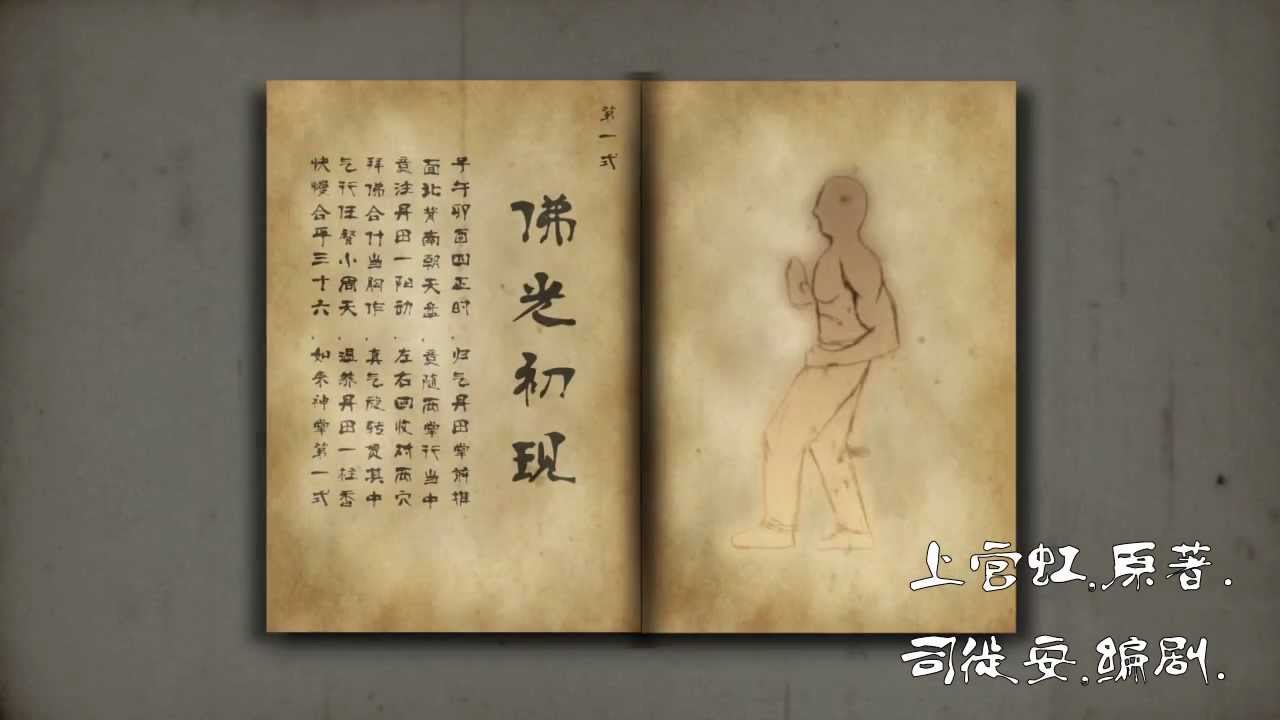 第一式
佛光初现
子午卯酉四正时,归气丹田掌前推
面北背南朝天盘,意随两掌行当中
意注丹田一阳动,左右回收对两穴
拜佛合什当胸作,真气旋转贯其中
气行任督小周天,温养丹田一柱香
快慢合平三十六,如来神掌第一式
上官虹.原著.
司徒安.编剧.